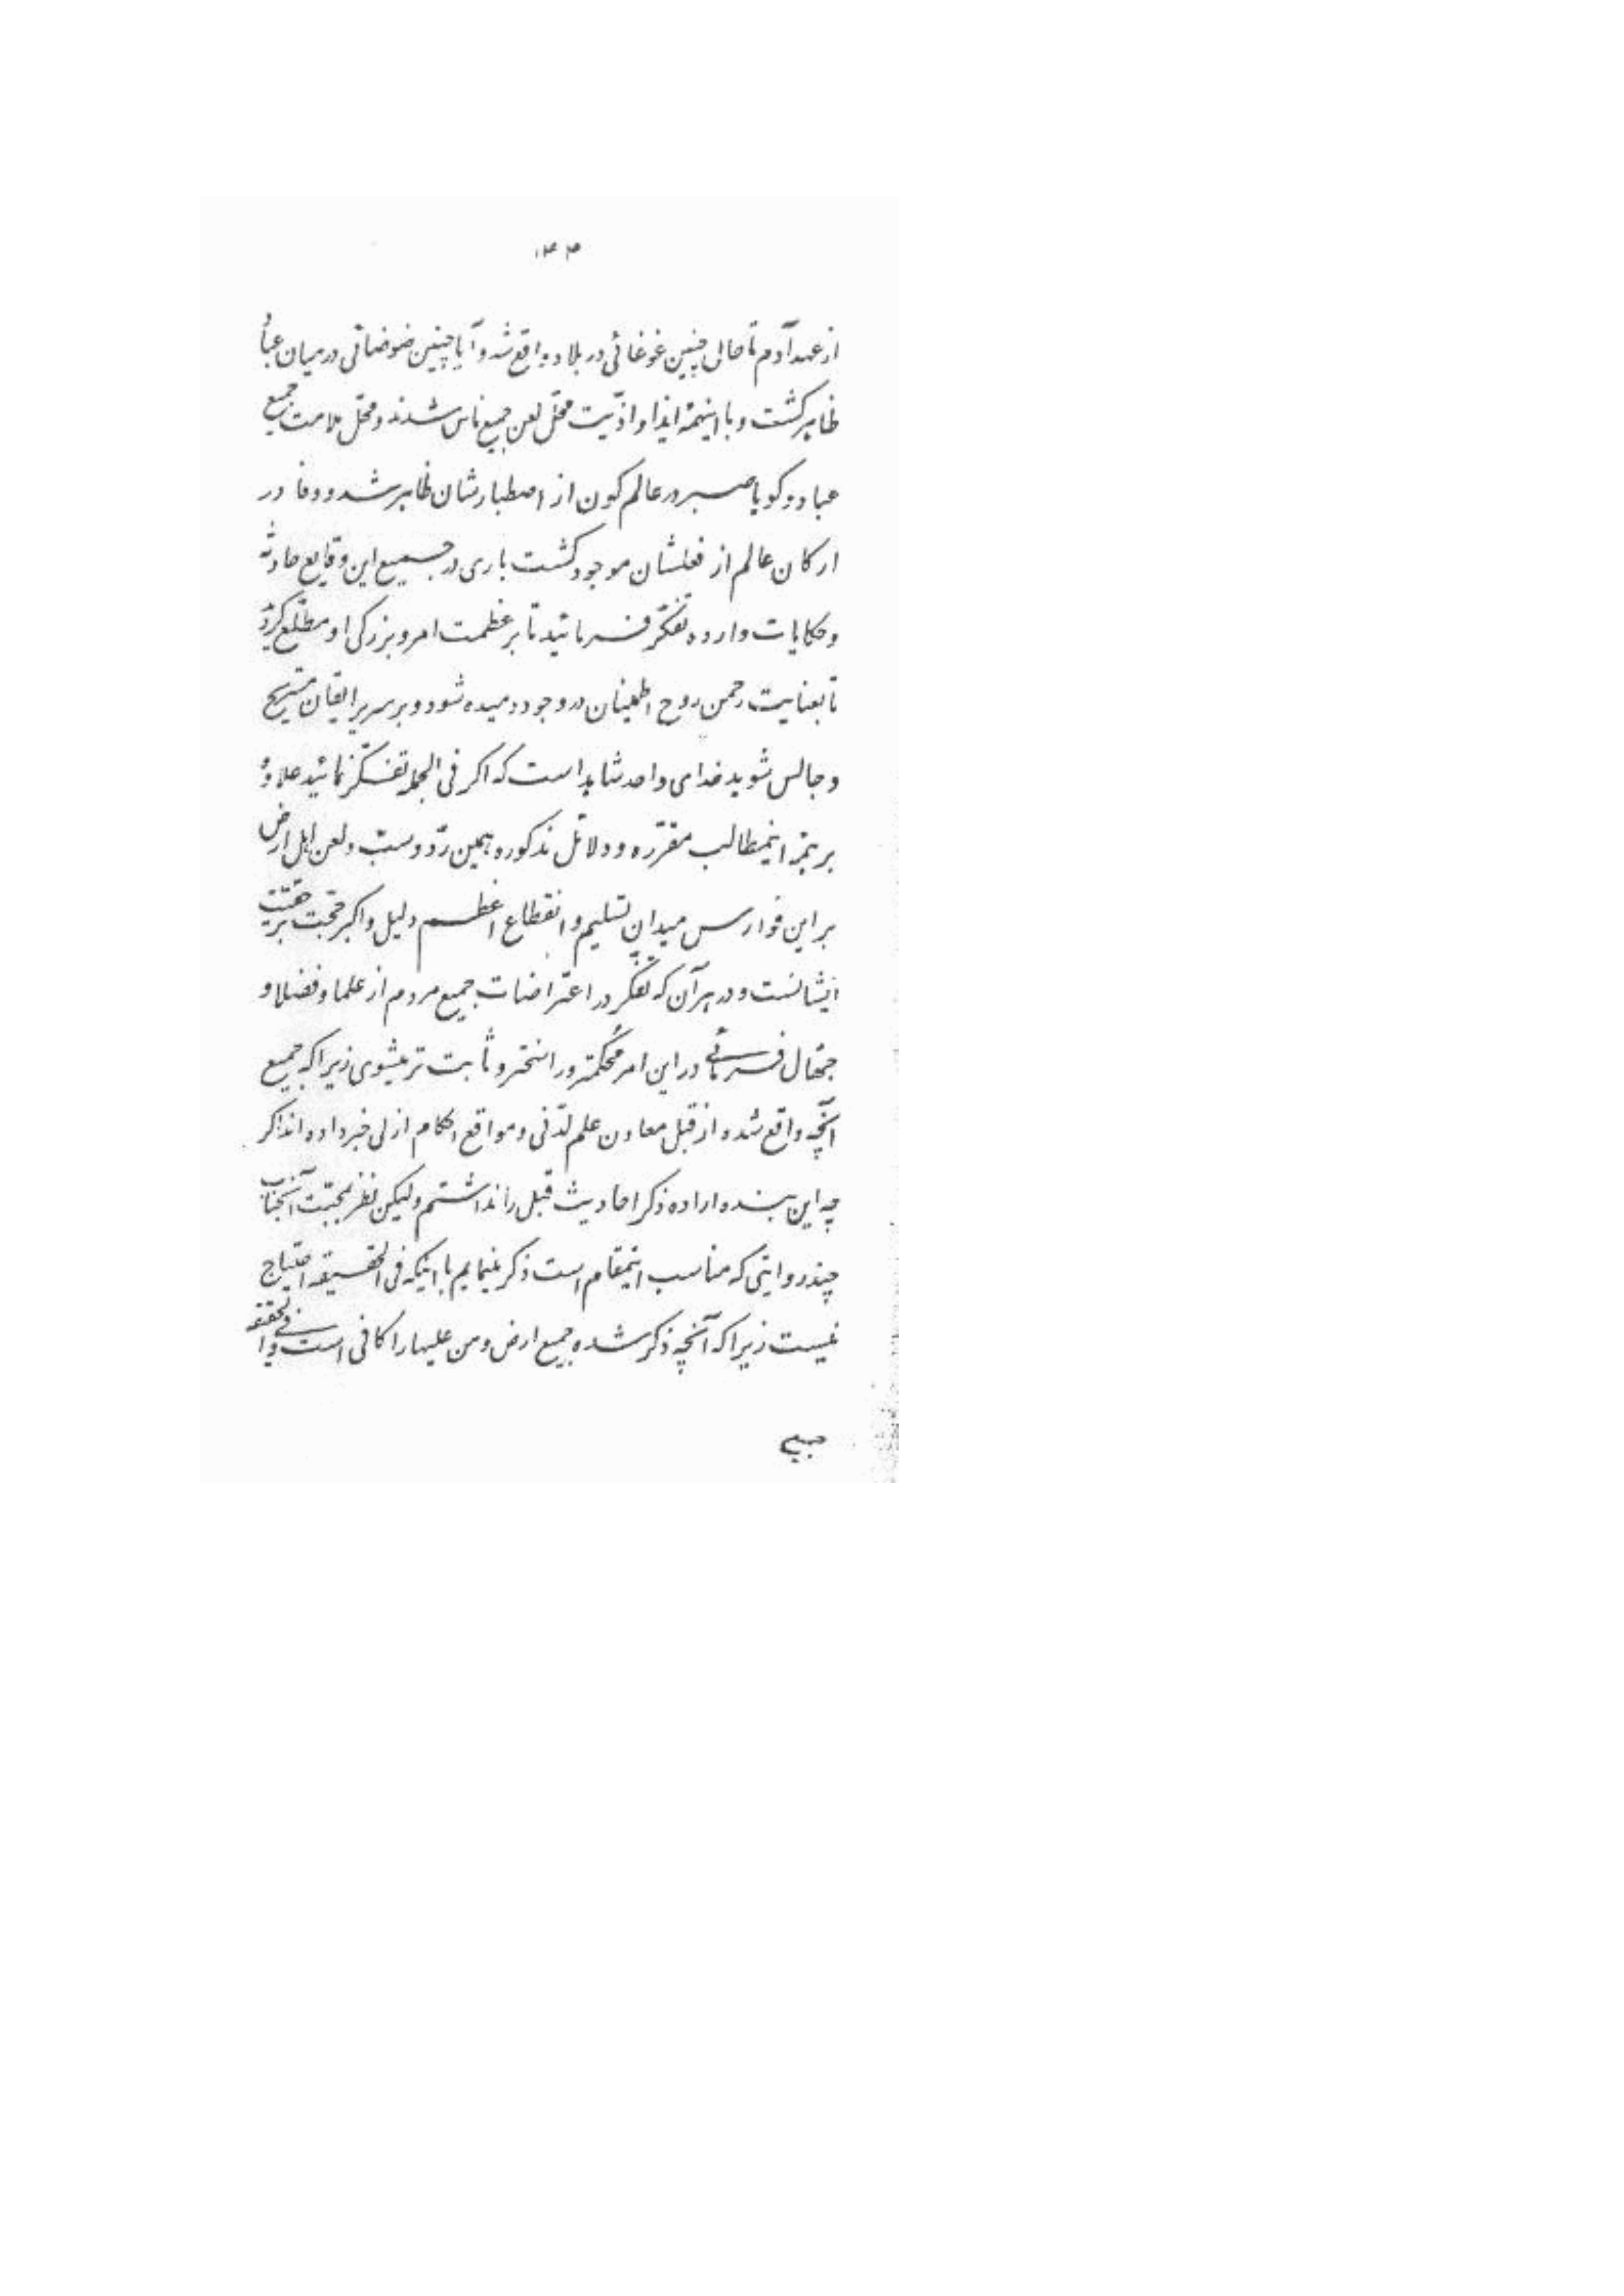 از عهد آدم تا حال چنین غوغائی در بلاد واقع شد و آیا چنین ضوضائی در میان عباد
ظاهر گشت و با اینهمه ایذا و اذیّت محلّ لعن جمیع ناس شدند و محلّ ملامت جمیع
عباد و گویا صبر در عالم کون از اصطبارشان ظاهر شد و وفا در
ارکان عالم از فعلشان موجود گشت باری در جمیع این وقایع حادثه
و حکایات وارده تفکّر فرمائید تا بر عظمت امر و بزرگی او مطّلع گردید
تا بعنایت رحمن روح اطمینان در وجود دمیده شود و بر سریر ایقان مستریح
و جالس شوید خدای واحد شاهد است که اگر فی الجمله تفکّر نمائید علاوهٔ
بر همهٔ اینمطالب مقرّره و دلائل مذکوره همین ردّ و سبّ و لعن اهل ارض
بر این فوارس میدان تسلیم و انقطاع اعظم دلیل و اکبر حجّت بر حقّیّت
ایشانست و در هر آن که تفکّر در اعتراضات جمیع مردم از علما و فضلا و
جهّال فرمائی در این امر محکمتر و راسختر و ثابت تر میشوی زیرا که جمیع
آنچه واقع شده از قبل معادن علم لدنّی و مواقع احکام ازلی خبر داده اند اگر
چه این بنده اراده ذکر احادیث قبل را نداشتم ولیکن نظر بمحبّت آنجناب
چند روایتی که مناسب اینمقام است ذکر مینمایم با اینکه فی الحقیقه احتیاج
نیست زیرا که آنچه ذکر شد جمیع ارض و من علیها را کافی است و فی الحقیقه
جمیع